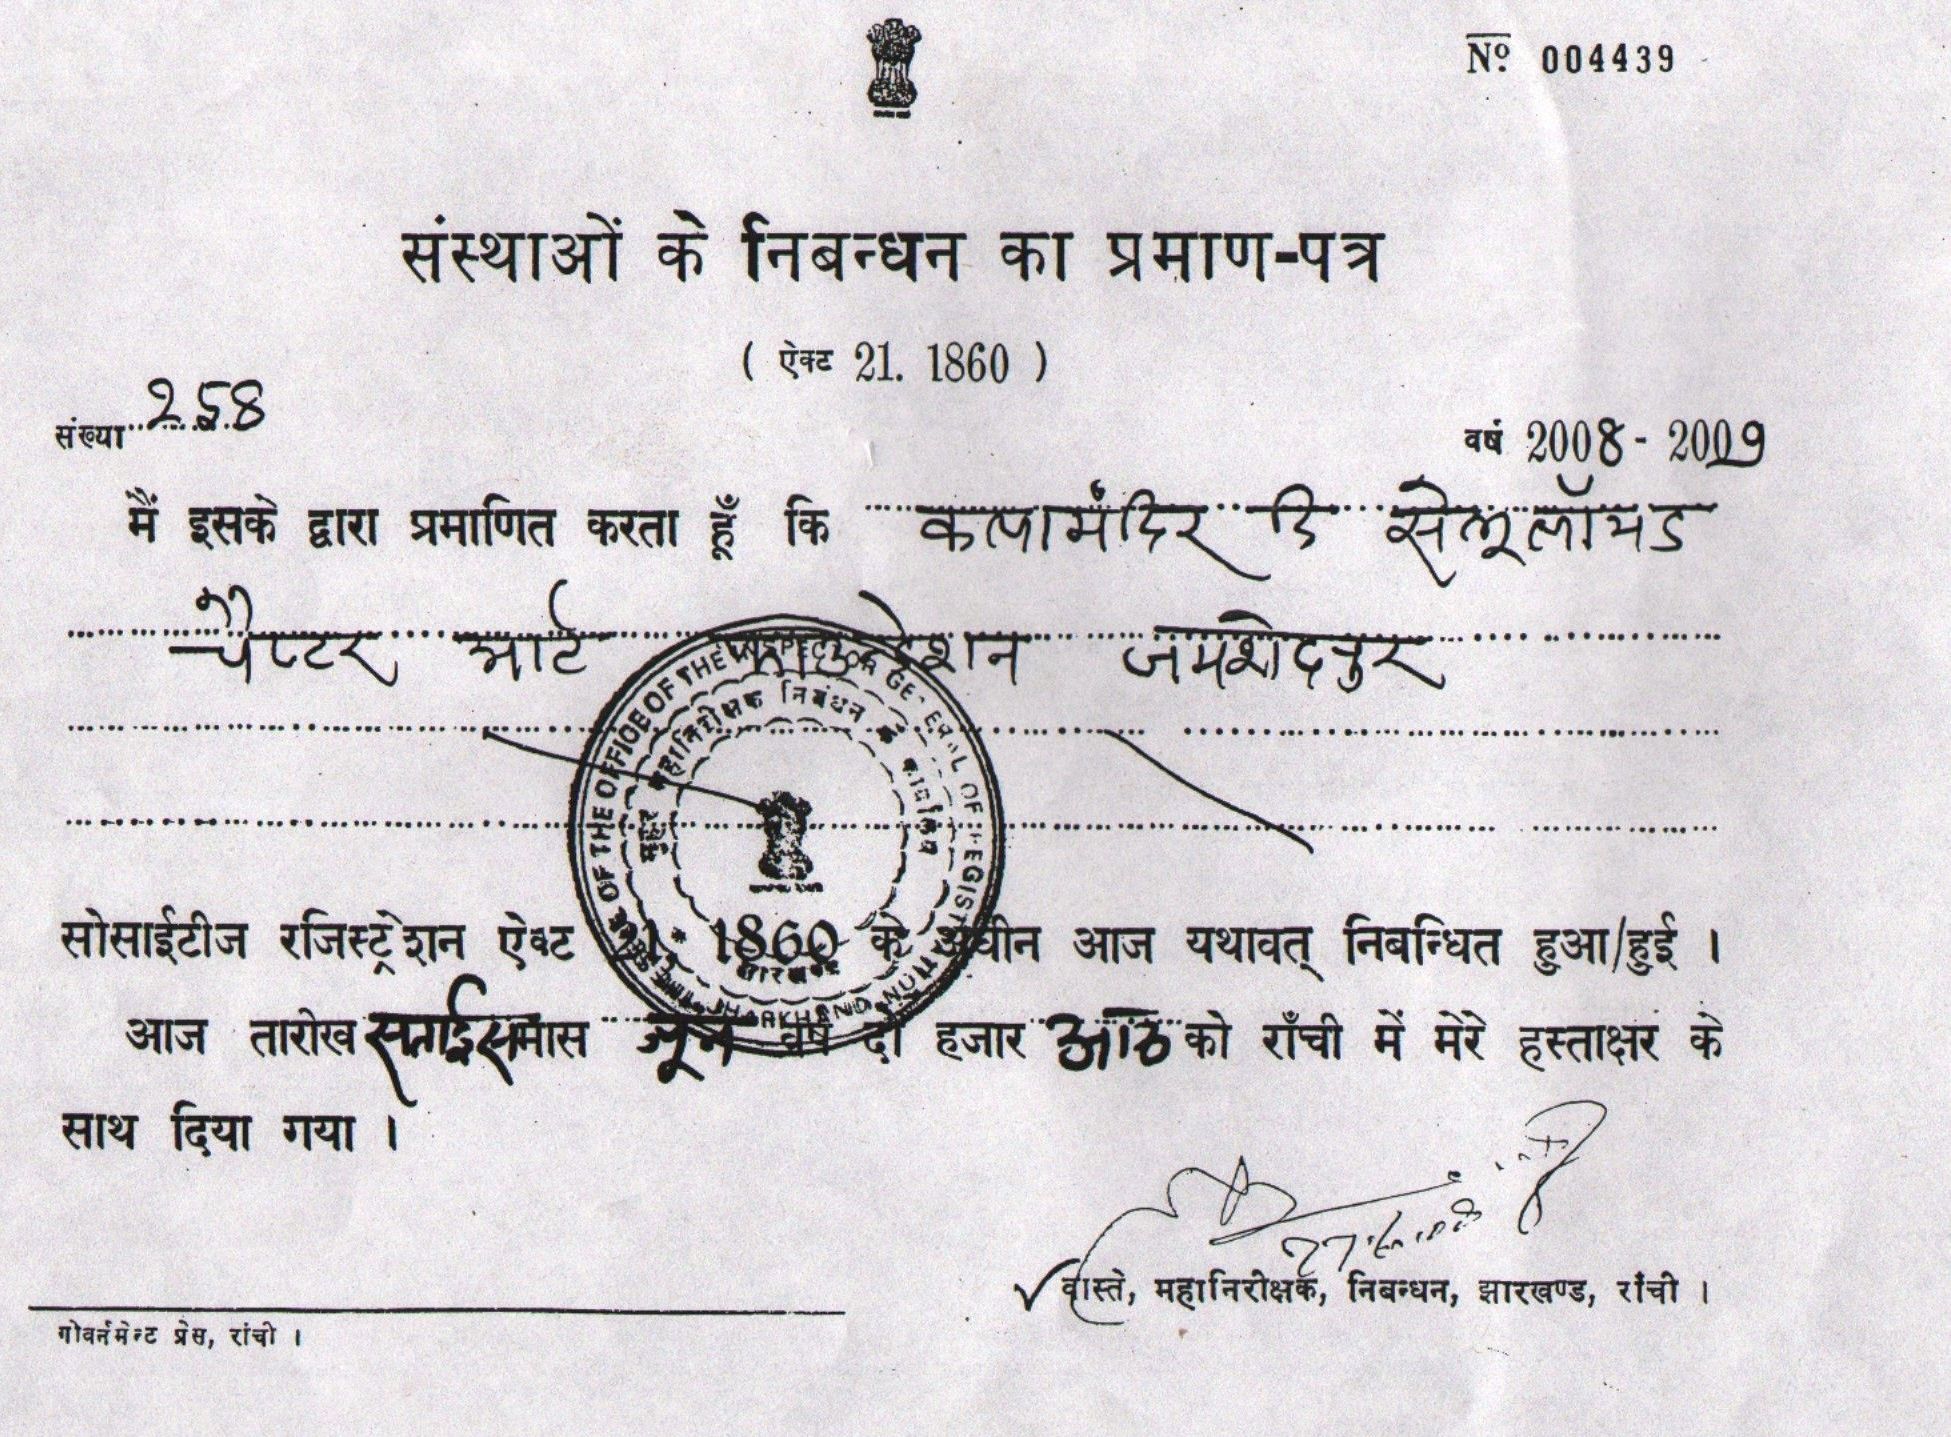 Nº 004439
संस्थाओं के निबन्धन का प्रमाण-पत्र
( ऐक्ट 21. 1860 )
संख्या 258
वर्ष 2008-2009
मैं इसके द्वारा प्रमाणित करता हूँ कि कलामंदिर दि सेलूलॉयड
चैप्टर आर्ट फाउन्डेशन जमशेदपुर
SEAL OF THE OFFICE OF THE INSPECTOR GENERAL OF REGISTRATION JHARKHAND
मुहर महानिरीक्षक निबंधन का कार्यालय
झारखण्ड
सोसाईटीज रजिस्ट्रेशन ऐक्ट 21. 1860 के अधीन आज यथावत् निबन्धित हुआ/हुई ।
आज तारीख सताईस मास जून वर्ष दो हजार आठ को राँची में मेरे हस्ताक्षर के
साथ दिया गया ।
वास्ते, महानिरीक्षक, निबन्धन, झारखण्ड, राँची ।
गोवर्नमेन्ट प्रेस, रांची ।